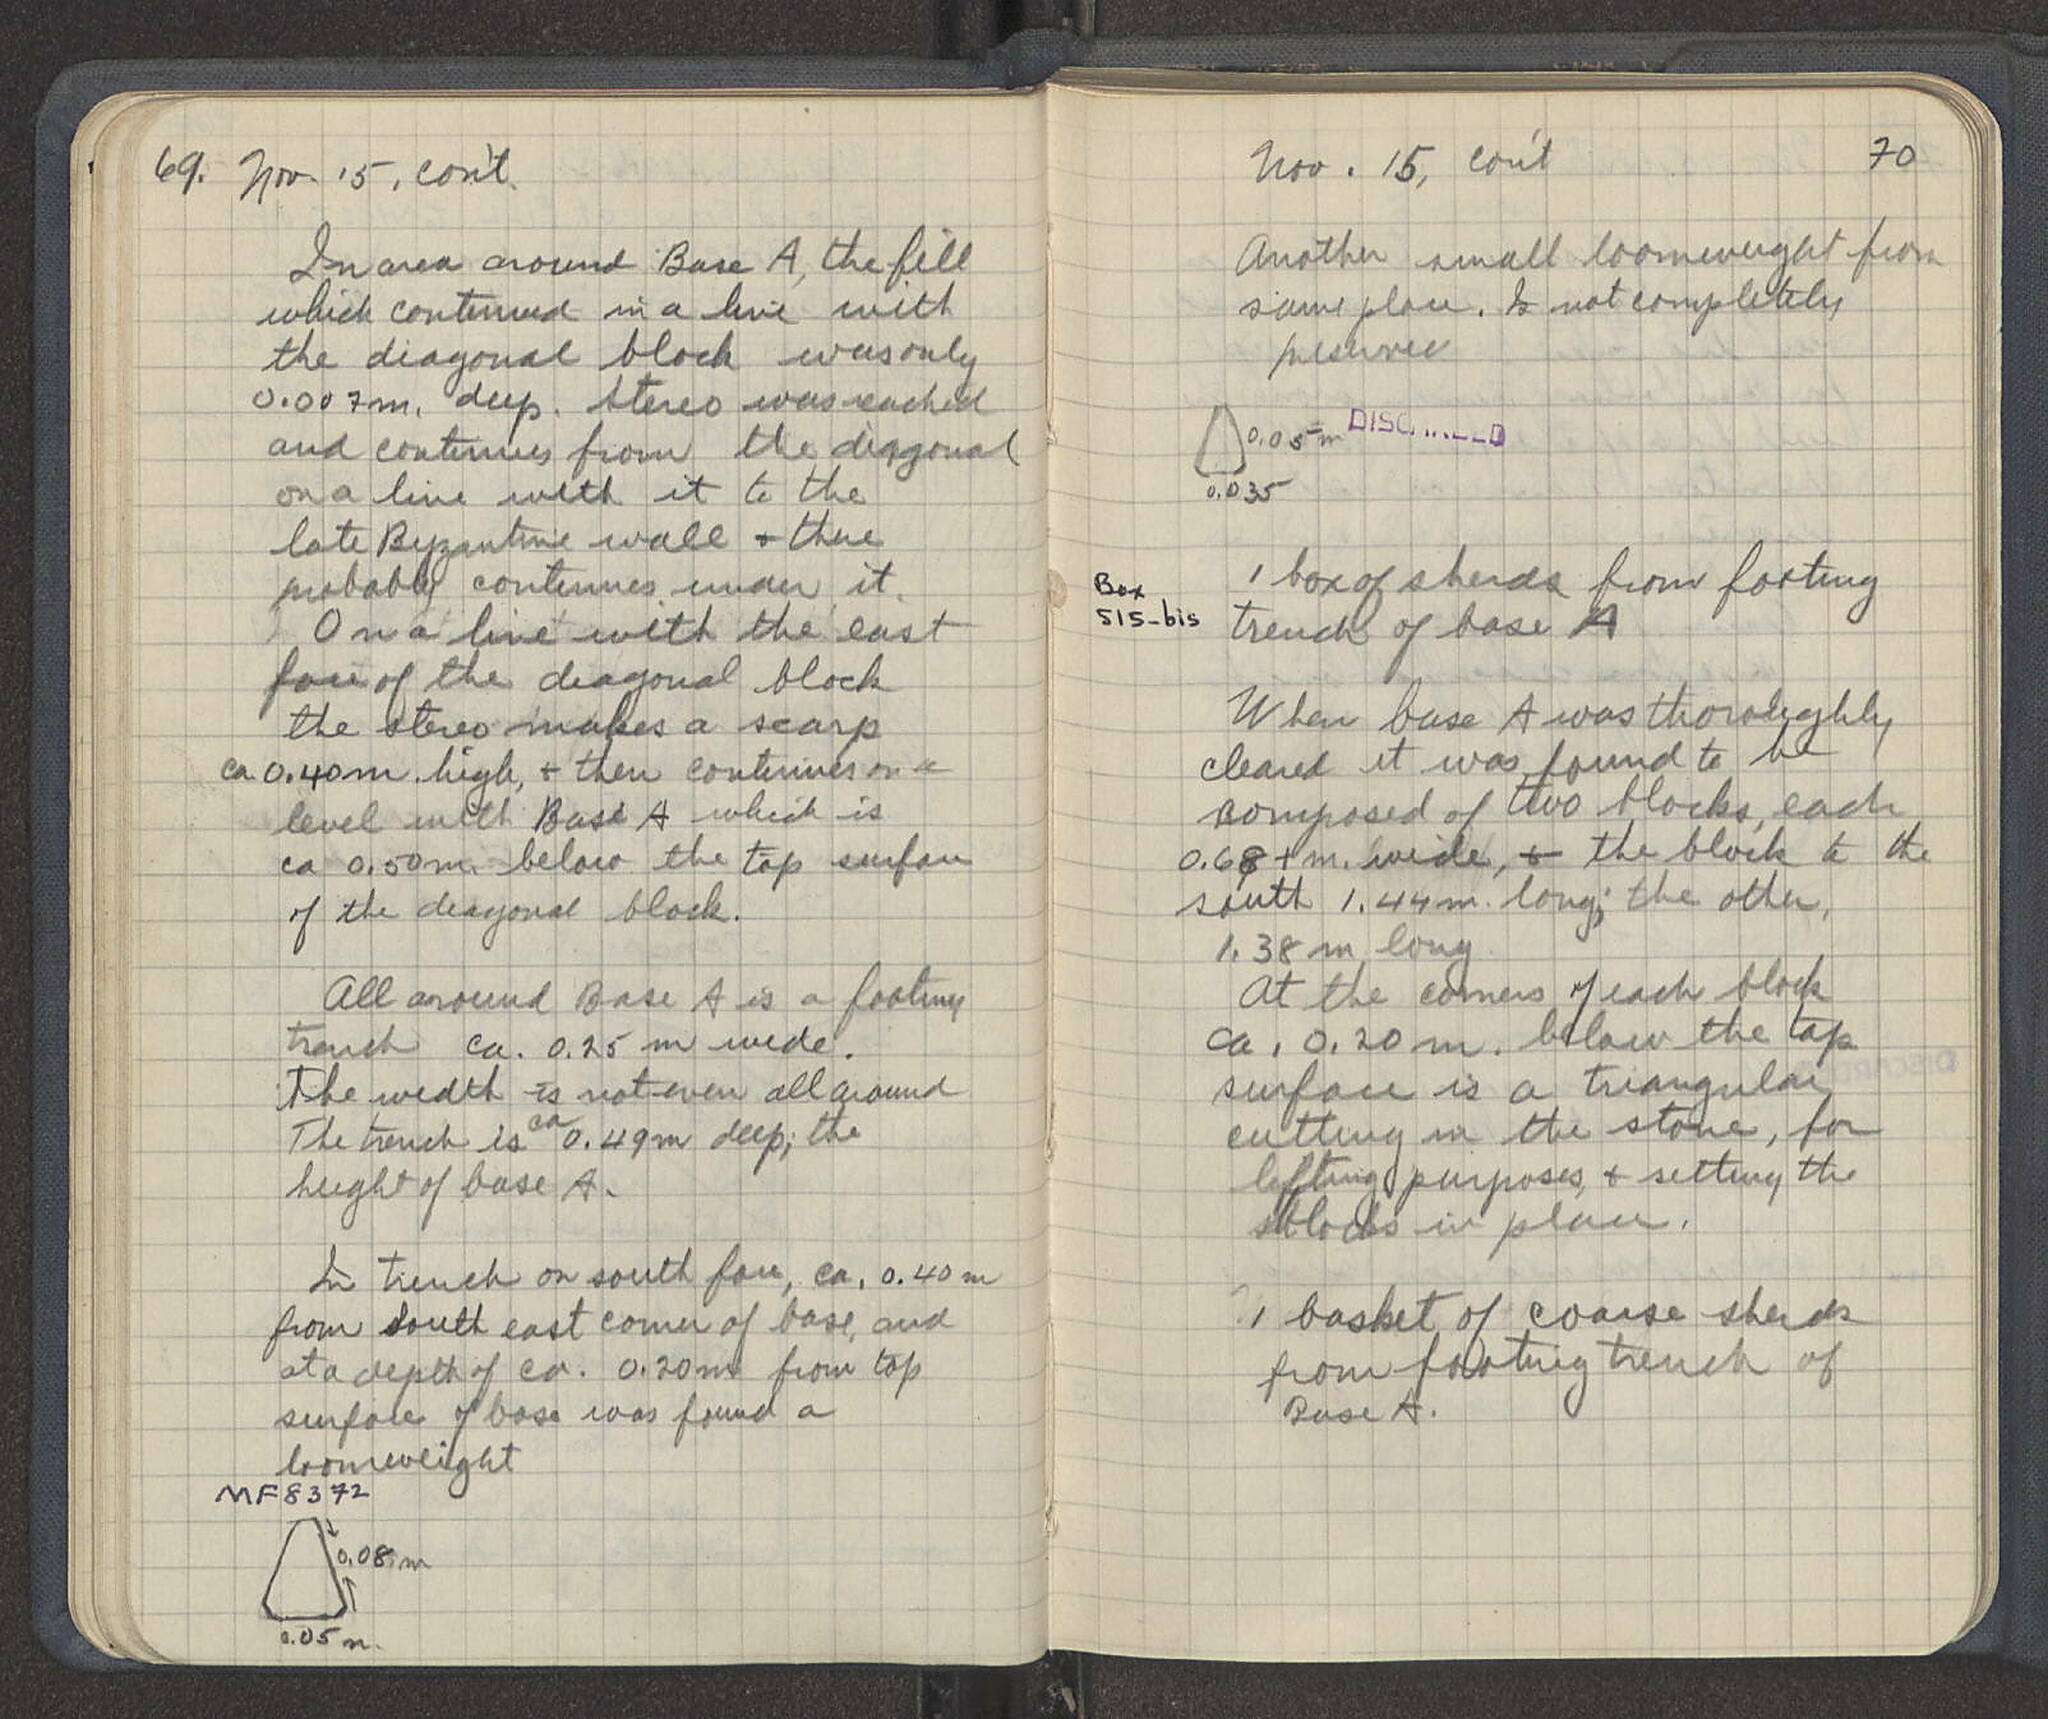 69. Nov. 15, con't.
In area around Base A, the fill
which continued in a line with
the diagonal block was only
0.007m. deep. Stereo was reached
and continues from the diagonal
on a line with it to the
late Byzantine wall + there
probably continues under it.
On a line with the east
face of the diagonal block
the stereo makes a scarp
ca. 0.40m. high, + then continues on a
level with Base A which is
ca 0.50m. below the top surface
of the diagonal block.
All around Base A is a footing
trench ca. 0.25 m wide.
The width is not even all around
The trench is ca 0.49m deep; the
height of base A.
In trench on south face, ca. 0.40 m
from south east corner of base, and
at a depth of ca. 0.20m from top
surface of base was found a
loomweight
MF 8372
0.08m
0.05 m.
Nov. 15, con't
70
Another small loomweight from
same place. Is not completely
preserved
0.05m DISCARDED
0.035
Box
515-bis
1 box of sherds from footing
trench of base A
When base A was thoroughly
cleared it was found to be
composed of two blocks, each
0.68+m. wide, + the block to the
south 1.44m. long; the other,
1.38 m long
At the corners of each block
ca. 0.20 m. below the top
surface is a triangular
cutting in the stone, for
lifting purposes, + setting the
blocks in place.
1 basket of coarse sherds
from footing trench of
Base A.